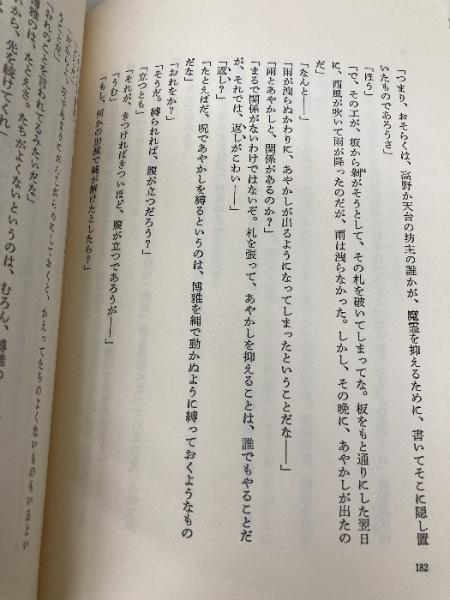 「つまり、おそらくは、高野か天台の坊主の誰かが、魔霊を抑えるために、書いてそこに隠し置
いたものであろうさ」
「ほう」
「で、その工が、板から剝がそうとして、その札を破いてしまってな。板をもと通りにした翌日
に、西風が吹いて雨が降ったのだが、雨は洩らなかった。しかし、その晩に、あやかしが出たの
だ」
「なんと――」
「雨が洩らぬかわりに、あやかしが出るようになってしまったということだな――」
「雨とあやかしと、関係があるのか？」
「まるで関係がないわけではないぞ。札を張って、あやかしを抑えることは、誰でもやることだ
が、それでは、返しがこわい――」
「返し？」
「たとえばだ、呪であやかしを縛るというのは、博雅を縄で動かぬように縛っておくようなもの
だな」
「おれをか？」
「そうだ。縛られれば、腹が立つだろう？」
「立つとも」
「それが、きつければきついほど、腹が立つであろうが――」
「うむ」
「もし、何かの加減で縄が解けたとしたら？」
182
かえってたちのよくないものもいるとい
「おれのことを言われてるみたいだな」
博雅のは、たちがよくないというのは、むろん、博雅の
から、先を続けてくれ」